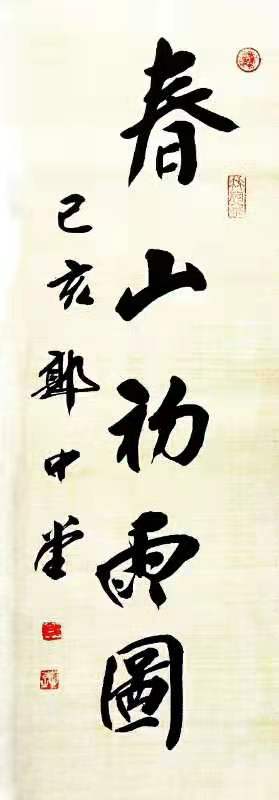 春山初雨圖
己亥鄭中堂